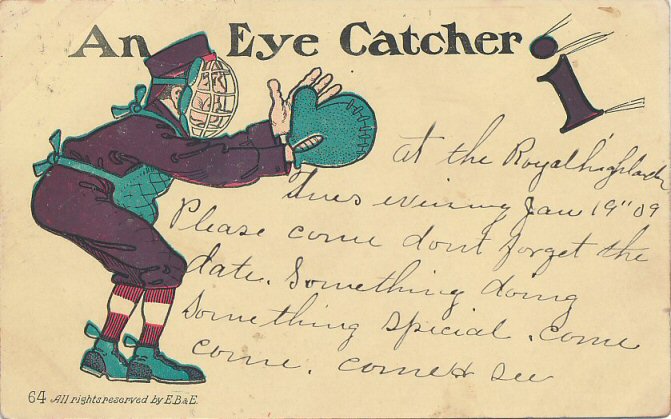 An Eye Catcher
i
at the Royal highlands
Tues evening Jan 19" 09
Please come dont forget the
date. Something doing
Something special. come
come. come & see
64 All rights reserved by E.B.& E.